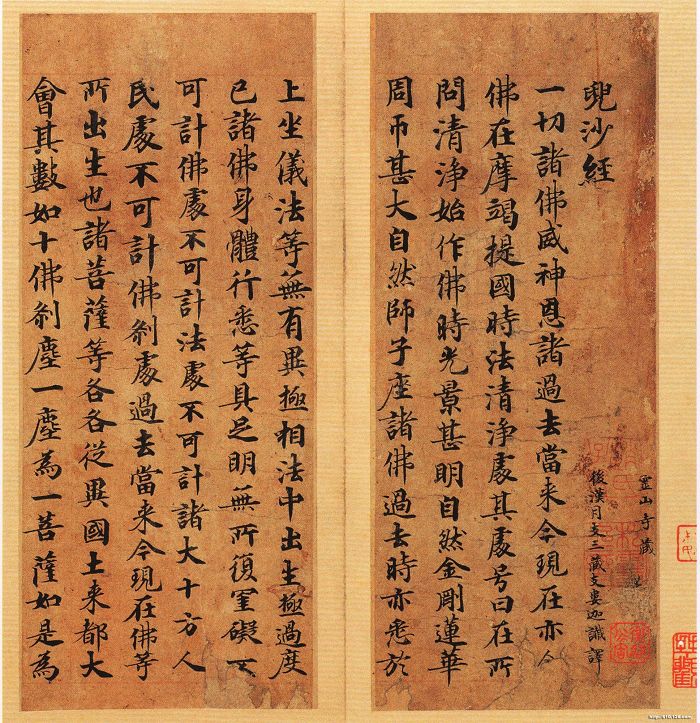 兜沙經
靈山寺藏
後漢月支三藏支婁迦讖譯
一切諸佛威神恩諸過去當来今現在亦尒
佛在摩竭提國時法清淨處其處号曰在所
問清淨始作佛時光景甚明自然金剛蓮華
周帀甚大自然師子座諸佛過去時亦悉於
上坐儀法等無有異極相法中出生極過度
已諸佛身體行悉等具足明無所復罣礙不
可計佛處不可計法處不可計諸大十方人
民處不可計佛剎處過去當来今現在佛等
所出生也諸菩薩等各各從異國土来都大
會其數如十佛剎塵一塵為一菩薩如是為